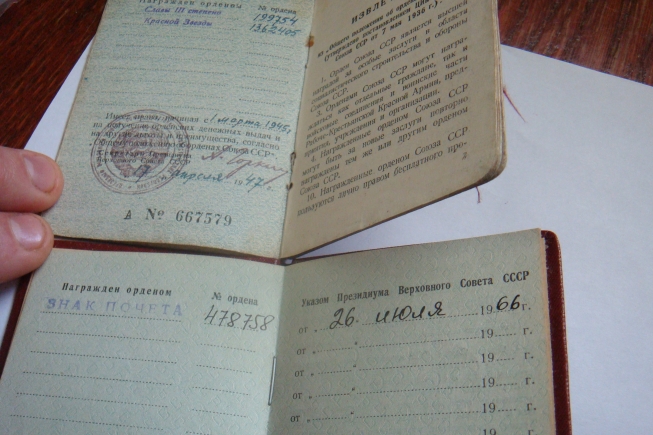 Награжден орденом
№ ордена
Славы III степени 199754
Красной Звезды 1362405
Имеет право, начиная с 1 марта 1945г.
на получение орденских денежных выдач и
на другие льготы и преимущества, согласно
"Общего положения об орденах Союза ССР".
Секретарь Президиума
Верховного Совета СССР
апреля 1947г.
А № 667579
из "Общего положения об орденах
Союза ССР от 7 мая 1936 г.).
1. Орден Союза ССР является высшей
наградой за особые заслуги в области
социалистического строительства и обороны
Союза ССР.
3. Орденами Союза ССР могут награ-
ждаться как отдельные граждане, так и
войсковые соединения и воинские части
Рабоче-Крестьянской Красной Армии, пред-
приятия, учреждения и организации.
4. Награжденные орденом Союза ССР
могут быть за новые заслуги повторно
награждены тем же или другим орденом
Союза ССР.
10. Награжденные орденом Союза ССР
пользуются лично правом бесплатного про-
2
Награжден орденом
№ ордена
ЗНАК ПОЧЕТА 478758
Указом Президиума Верховного Совета СССР
от „ 26 " июля 1966г.
от „ " 19 г.
от „ " 19 г.
от „ " 19 г.
от „ " 19 г.